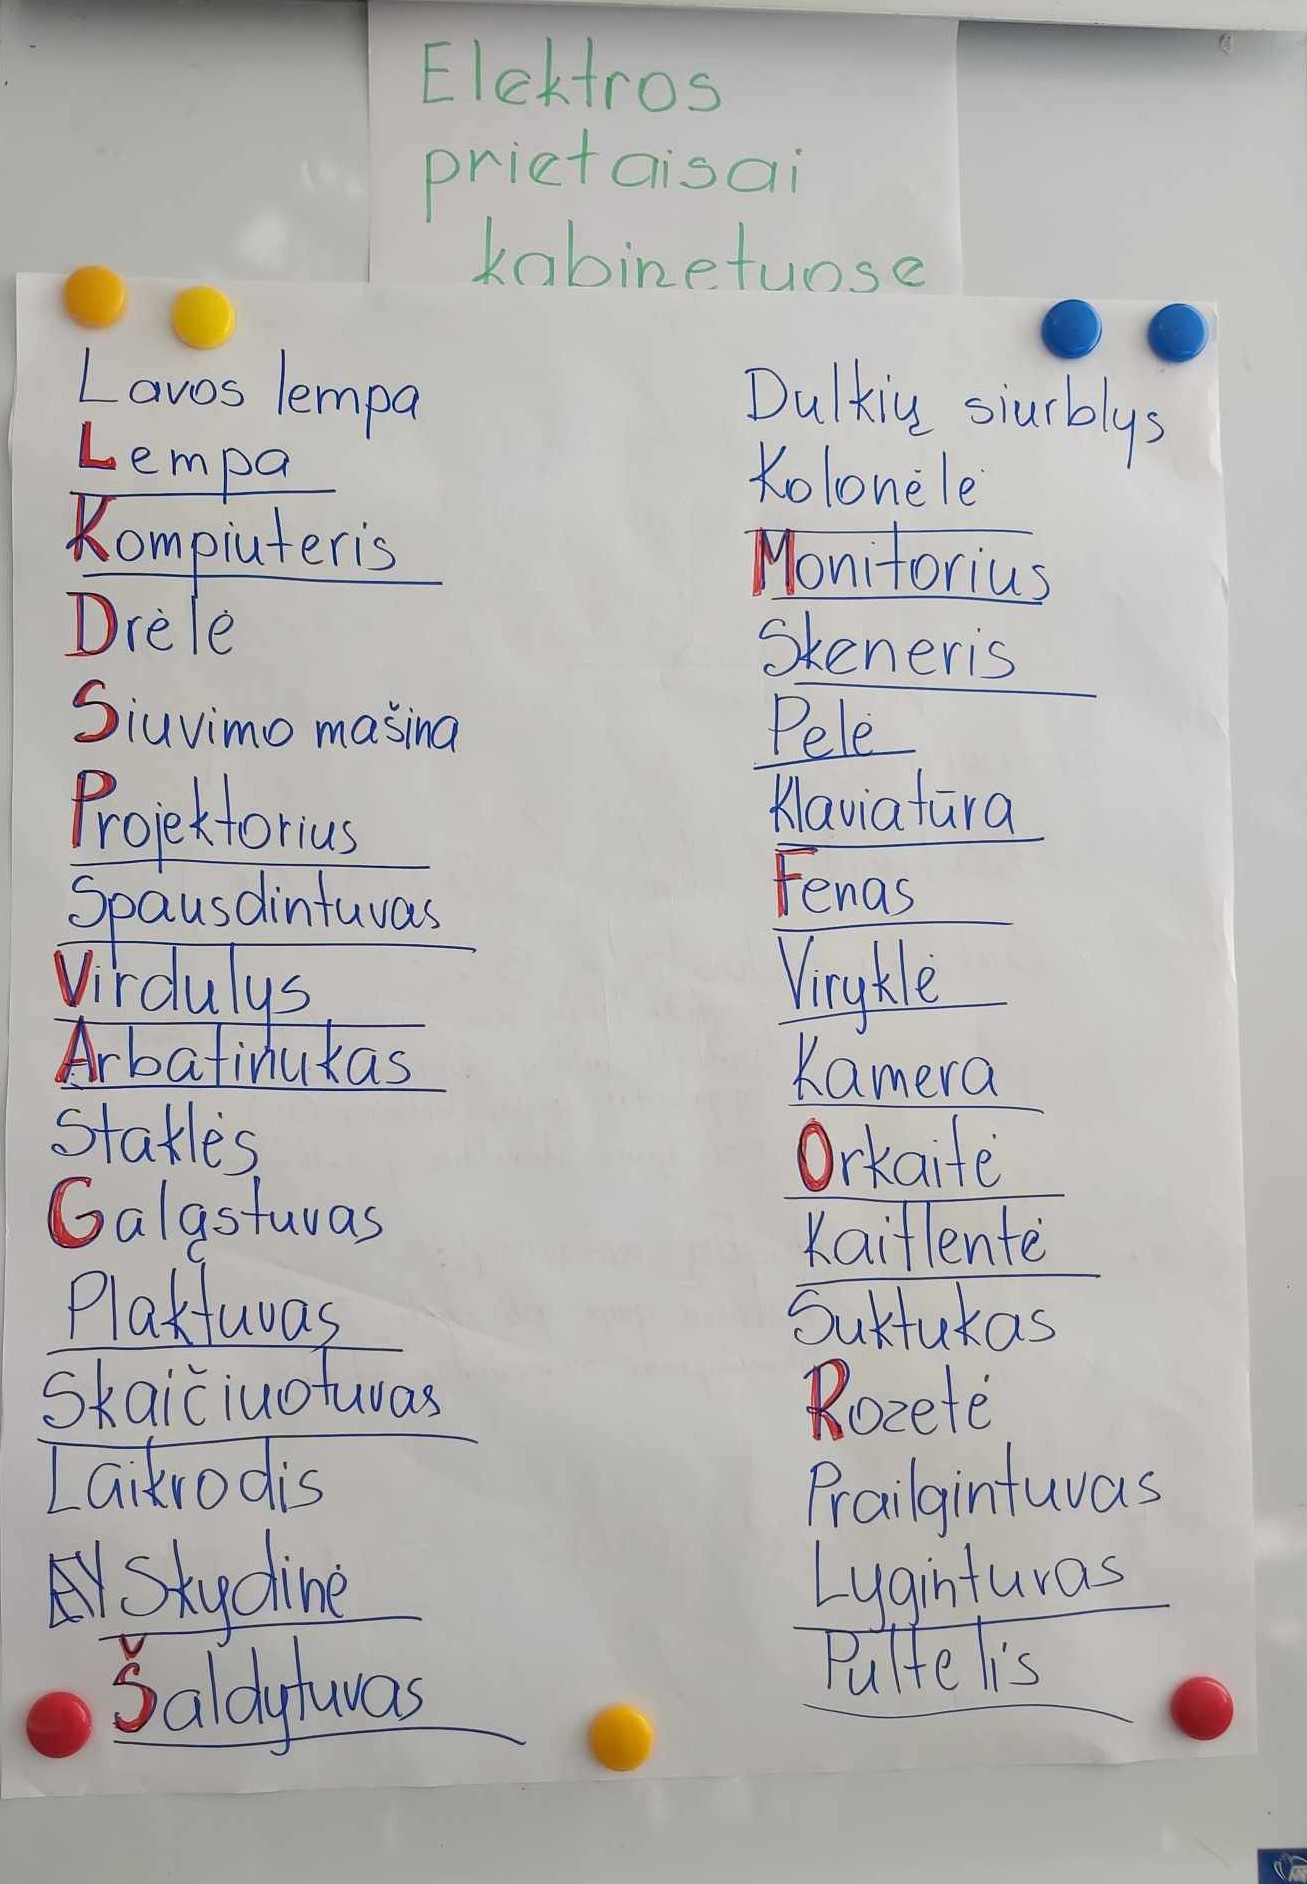 Elektros
prietaisai
kabinetuose
Lavos lempa
Lempa
Kompiuteris
Drėlė
Siuvimo mašina
Projektorius
Spausdintuvas
Virdulys
Arbatinukas
Staklės
Galąstuvas
Plaktuvas
Skaičiuotuvas
Laikrodis
Skydinė
Šaldytuvas
Dulkių siurblys
Kolonėlė
Monitorius
Skeneris
Pelė
Klaviatūra
Fenas
Viryklė
Kamera
Orkaitė
Kaitlentė
Suktukas
Rozetė
Prailgintuvas
Lygintuvas
Pultelis